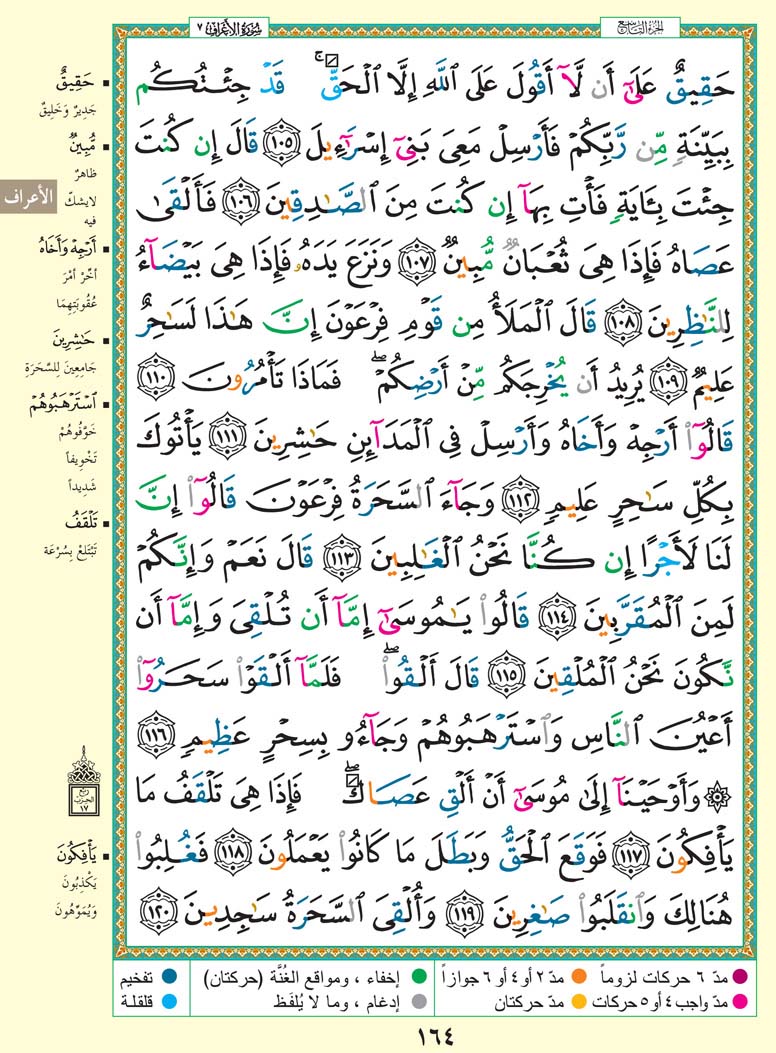 الجزء التاسع
سورة الأعراف ٧
حَقِيقٌ عَلَىٰٓ أَن لَّآ أَقُولَ عَلَى ٱللَّهِ إِلَّا ٱلْحَقَّ ۚ قَدْ جِئْتُكُم
بِبَيِّنَةٍ مِّن رَّبِّكُمْ فَأَرْسِلْ مَعِىَ بَنِىٓ إِسْرَٰٓءِيلَ ١٠٥ قَالَ إِن كُنتَ
جِئْتَ بِـَٔايَةٍ فَأْتِ بِهَآ إِن كُنتَ مِنَ ٱلصَّٰدِقِينَ ١٠٦ فَأَلْقَىٰ
عَصَاهُ فَإِذَا هِىَ ثُعْبَانٌ مُّبِينٌ ١٠٧ وَنَزَعَ يَدَهُۥ فَإِذَا هِىَ بَيْضَآءُ
لِلنَّٰظِرِينَ ١٠٨ قَالَ ٱلْمَلَأُ مِن قَوْمِ فِرْعَوْنَ إِنَّ هَٰذَا لَسَٰحِرٌ
عَلِيمٌ ١٠٩ يُرِيدُ أَن يُخْرِجَكُم مِّنْ أَرْضِكُمْ ۖ فَمَاذَا تَأْمُرُونَ ١١٠
قَالُوٓا۟ أَرْجِهْ وَأَخَاهُ وَأَرْسِلْ فِى ٱلْمَدَآئِنِ حَٰشِرِينَ ١١١ يَأْتُوكَ
بِكُلِّ سَٰحِرٍ عَلِيمٍ ١١٢ وَجَآءَ ٱلسَّحَرَةُ فِرْعَوْنَ قَالُوٓا۟ إِنَّ
لَنَا لَأَجْرًا إِن كُنَّا نَحْنُ ٱلْغَٰلِبِينَ ١١٣ قَالَ نَعَمْ وَإِنَّكُمْ
لَمِنَ ٱلْمُقَرَّبِينَ ١١٤ قَالُوا۟ يَٰمُوسَىٰٓ إِمَّآ أَن تُلْقِىَ وَإِمَّآ أَن
نَّكُونَ نَحْنُ ٱلْمُلْقِينَ ١١٥ قَالَ أَلْقُوا۟ ۖ فَلَمَّآ أَلْقَوْا۟ سَحَرُوٓا۟
أَعْيُنَ ٱلنَّاسِ وَٱسْتَرْهَبُوهُمْ وَجَآءُو بِسِحْرٍ عَظِيمٍ ١١٦
۞ وَأَوْحَيْنَآ إِلَىٰ مُوسَىٰٓ أَنْ أَلْقِ عَصَاكَ ۖ فَإِذَا هِىَ تَلْقَفُ مَا
يَأْفِكُونَ ١١٧ فَوَقَعَ ٱلْحَقُّ وَبَطَلَ مَا كَانُوا۟ يَعْمَلُونَ ١١٨ فَغُلِبُوا۟
هُنَالِكَ وَٱنقَلَبُوا۟ صَٰغِرِينَ ١١٩ وَأُلْقِىَ ٱلسَّحَرَةُ سَٰجِدِينَ ١٢٠
حَقِيقٌ
جَدِيرٌ وَخَلِيقٌ
مُّبِينٌ
ظاهرٌ
لايشكّ
فيه
أَرْجِهْ وَأَخَاهُ
أخِّرْ أمْرَ
عُقُوبَتِهِمَا
حَٰشِرِينَ
جَامِعِينَ لِلسَّحَرَةِ
ٱسْتَرْهَبُوهُمْ
خَوَّفُوهُمْ
تَخْوِيفاً
شَدِيداً
تَلْقَفُ
تَبْتَلِعُ بِسُرْعَة
ربع
الحزب
١٧
يَأْفِكُونَ
يَكْذِبُونَ
وَيُمَوِّهُونَ
الأعراف
مدّ ٦ حركات لزوماً
مدّ ٢ أو ٤ أو ٦ جوازاً
إخفاء ، ومواقع الغُنَّة (حركتان)
تفخيم
مدّ واجب ٤ أو ٥ حركات
مدّ حركتان
إدغام ، وما لا يُلفَظ
قلقلة
١٦٤